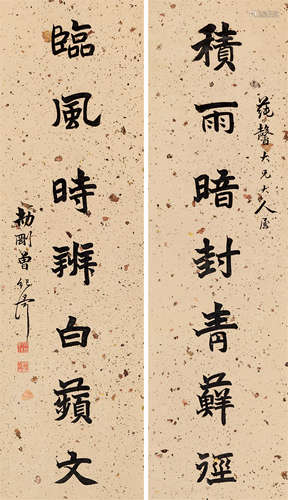 積雨暗封青蘚徑
馨大兄大人屬
臨風時辨白蘋文
劼剛曾紀澤